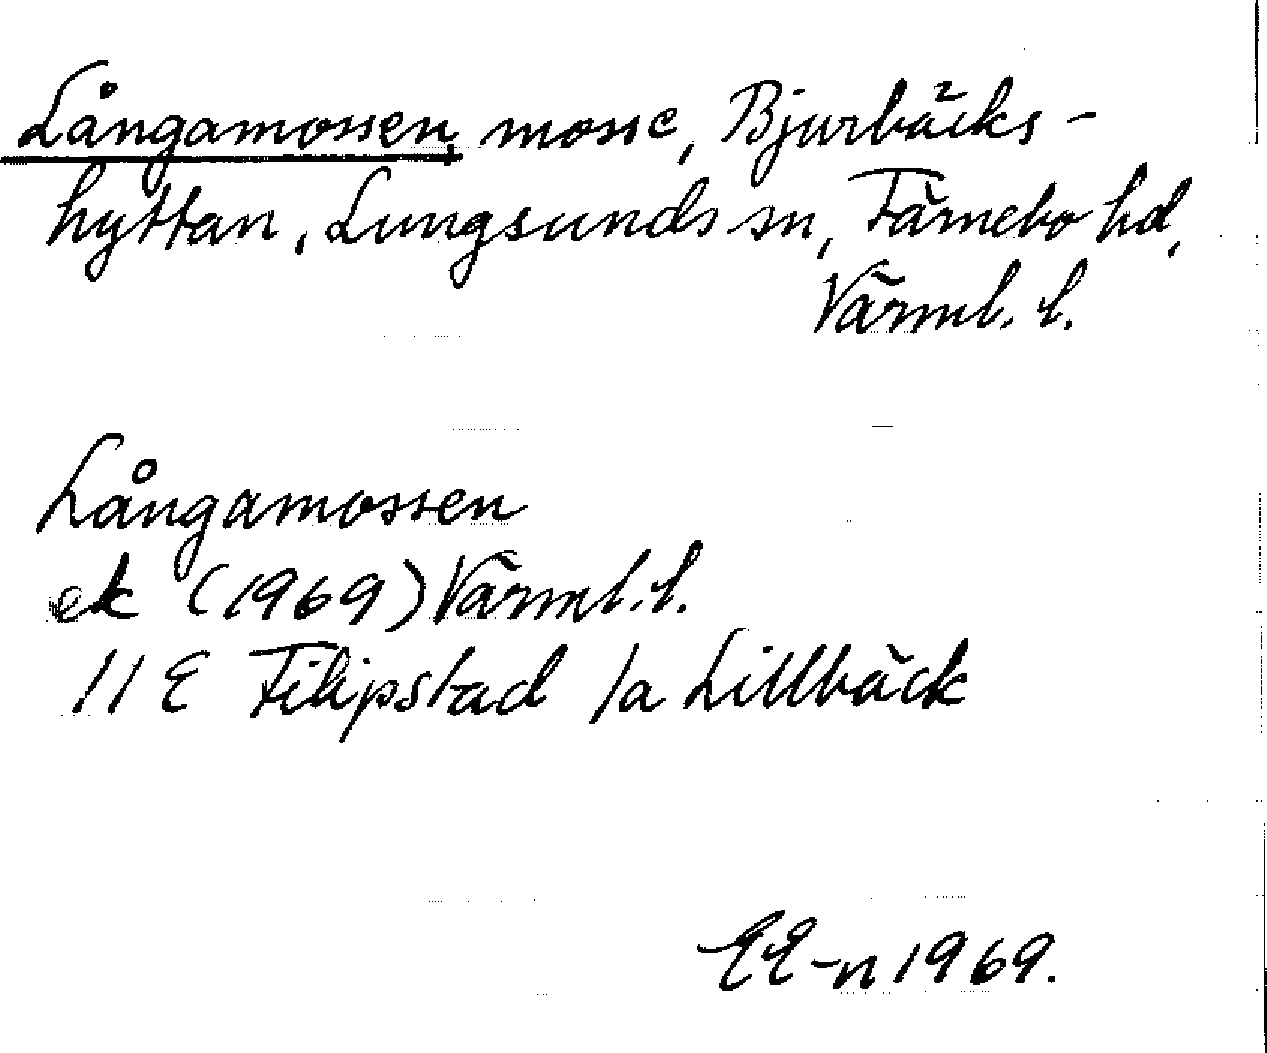 Långamossen, mosse, Bjurbäcks-
hyttan, Lungsunds sn, Färnebo hd,
Värml. l.
Långamossen
ek (1969) Värml. l.
11 E Filipstad 1a Lillbäck
EE-n 1969.